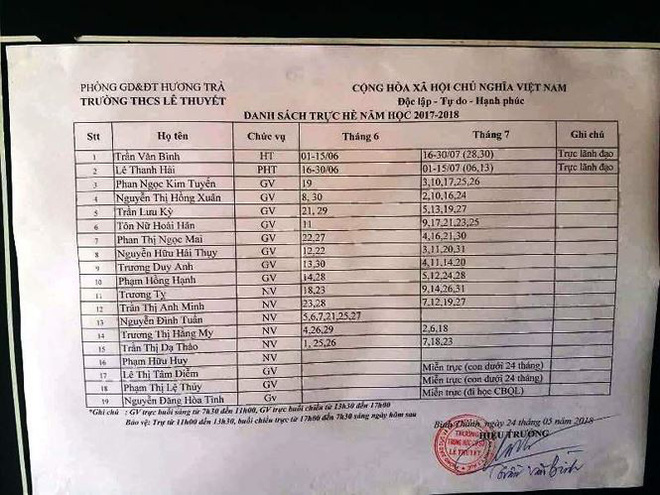 PHÒNG GD&ĐT HƯƠNG TRÀ CỘNG HÒA XÃ HỘI CHỦ NGHĨA VIỆT NAM
TRƯỜNG THCS LÊ THUYẾT Độc lập - Tự do - Hạnh phúc
DANH SÁCH TRỰC HÈ NĂM HỌC 2017-2018
Stt Họ tên Chức vụ Tháng 6 Tháng 7 Ghi chú
1 Trần Văn Bình HT 01-15/06 16-30/07 (28,30) Trực lãnh đạo
2 Lê Thanh Hải PHT 16-30/06 01-15/07 (06,13) Trực lãnh đạo
3 Phan Ngọc Kim Tuyến GV 19 3,10,17,25,26
4 Nguyễn Thị Hồng Xuân GV 8, 30 2,10,16,24
5 Trần Lưu Kỳ GV 21, 29 5,13,19,27
6 Tôn Nữ Hoài Hân GV 11 9,17,21,23,25
7 Phan Thị Ngọc Mai GV 22,27 4,16,21,30
8 Nguyễn Hữu Hải Thụy GV 12,22 3,11,20,31
9 Trương Duy Anh GV 13,30 4,11,14,20
10 Phạm Hồng Hạnh GV 14,28 5,12,24,28
11 Trương Tỵ NV 18,23 9,14,26,31
12 Trần Thị Anh Minh NV 23,28 7,12,19,27
13 Nguyễn Đình Tuấn NV 5,6,7,21,25,27
14 Trương Thị Hằng My NV 4,26,29 2,6,18
15 Trần Thị Dạ Thảo NV 1, 25,26 7,18,23
16 Phạm Hữu Huy NV
17 Lê Thị Tâm Diễm GV Miễn trực (con dưới 24 tháng)
18 Phạm Thị Lệ Thủy GV Miễn trực (con dưới 24 tháng)
19 Nguyễn Đăng Hòa Tính Gv Miễn trực (đi học CBQL)
*Ghi chú : GV trực buổi sáng từ 7h30 đến 11h00, GV trực buổi chiều từ 13h30 đến 17h00
Bảo vệ: Trự từ 11h00 đến 13h30, buổi chiều trực từ 17h00 đến 7h30 sáng ngày hôm sau
Bình Thành, ngày 24 tháng 05 năm 2018
HIỆU TRƯỞNG
TRƯỜNG
TRUNG HỌC CƠ SỞ
LÊ THUYẾT
Trần Văn Bình